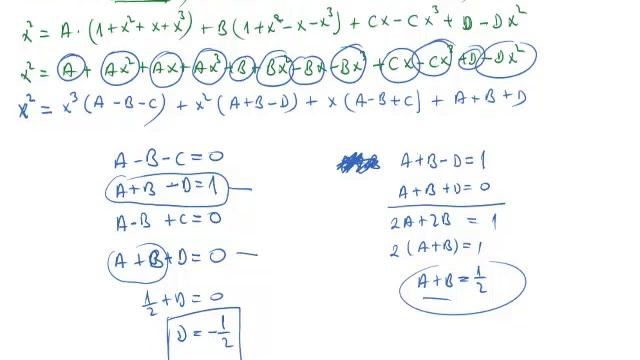 x² = A · (1+x²+x+x³) + B(1+x²-x-x³) + Cx - Cx³ + D - Dx²
x² = A + Ax² + Ax + Ax³ + B + Bx² - Bx - Bx³ + Cx - Cx³ + D - Dx²
x² = x³(A-B-C) + x²(A+B-D) + x(A-B+C) + A+B+D
A-B-C=0
A+B-D=1
A-B+C=0
A+B+D=0
1/2+D=0
D=-1/2
A+B-D=1
A+B+D=0
2A+2B=1
2(A+B)=1
A+B=1/2